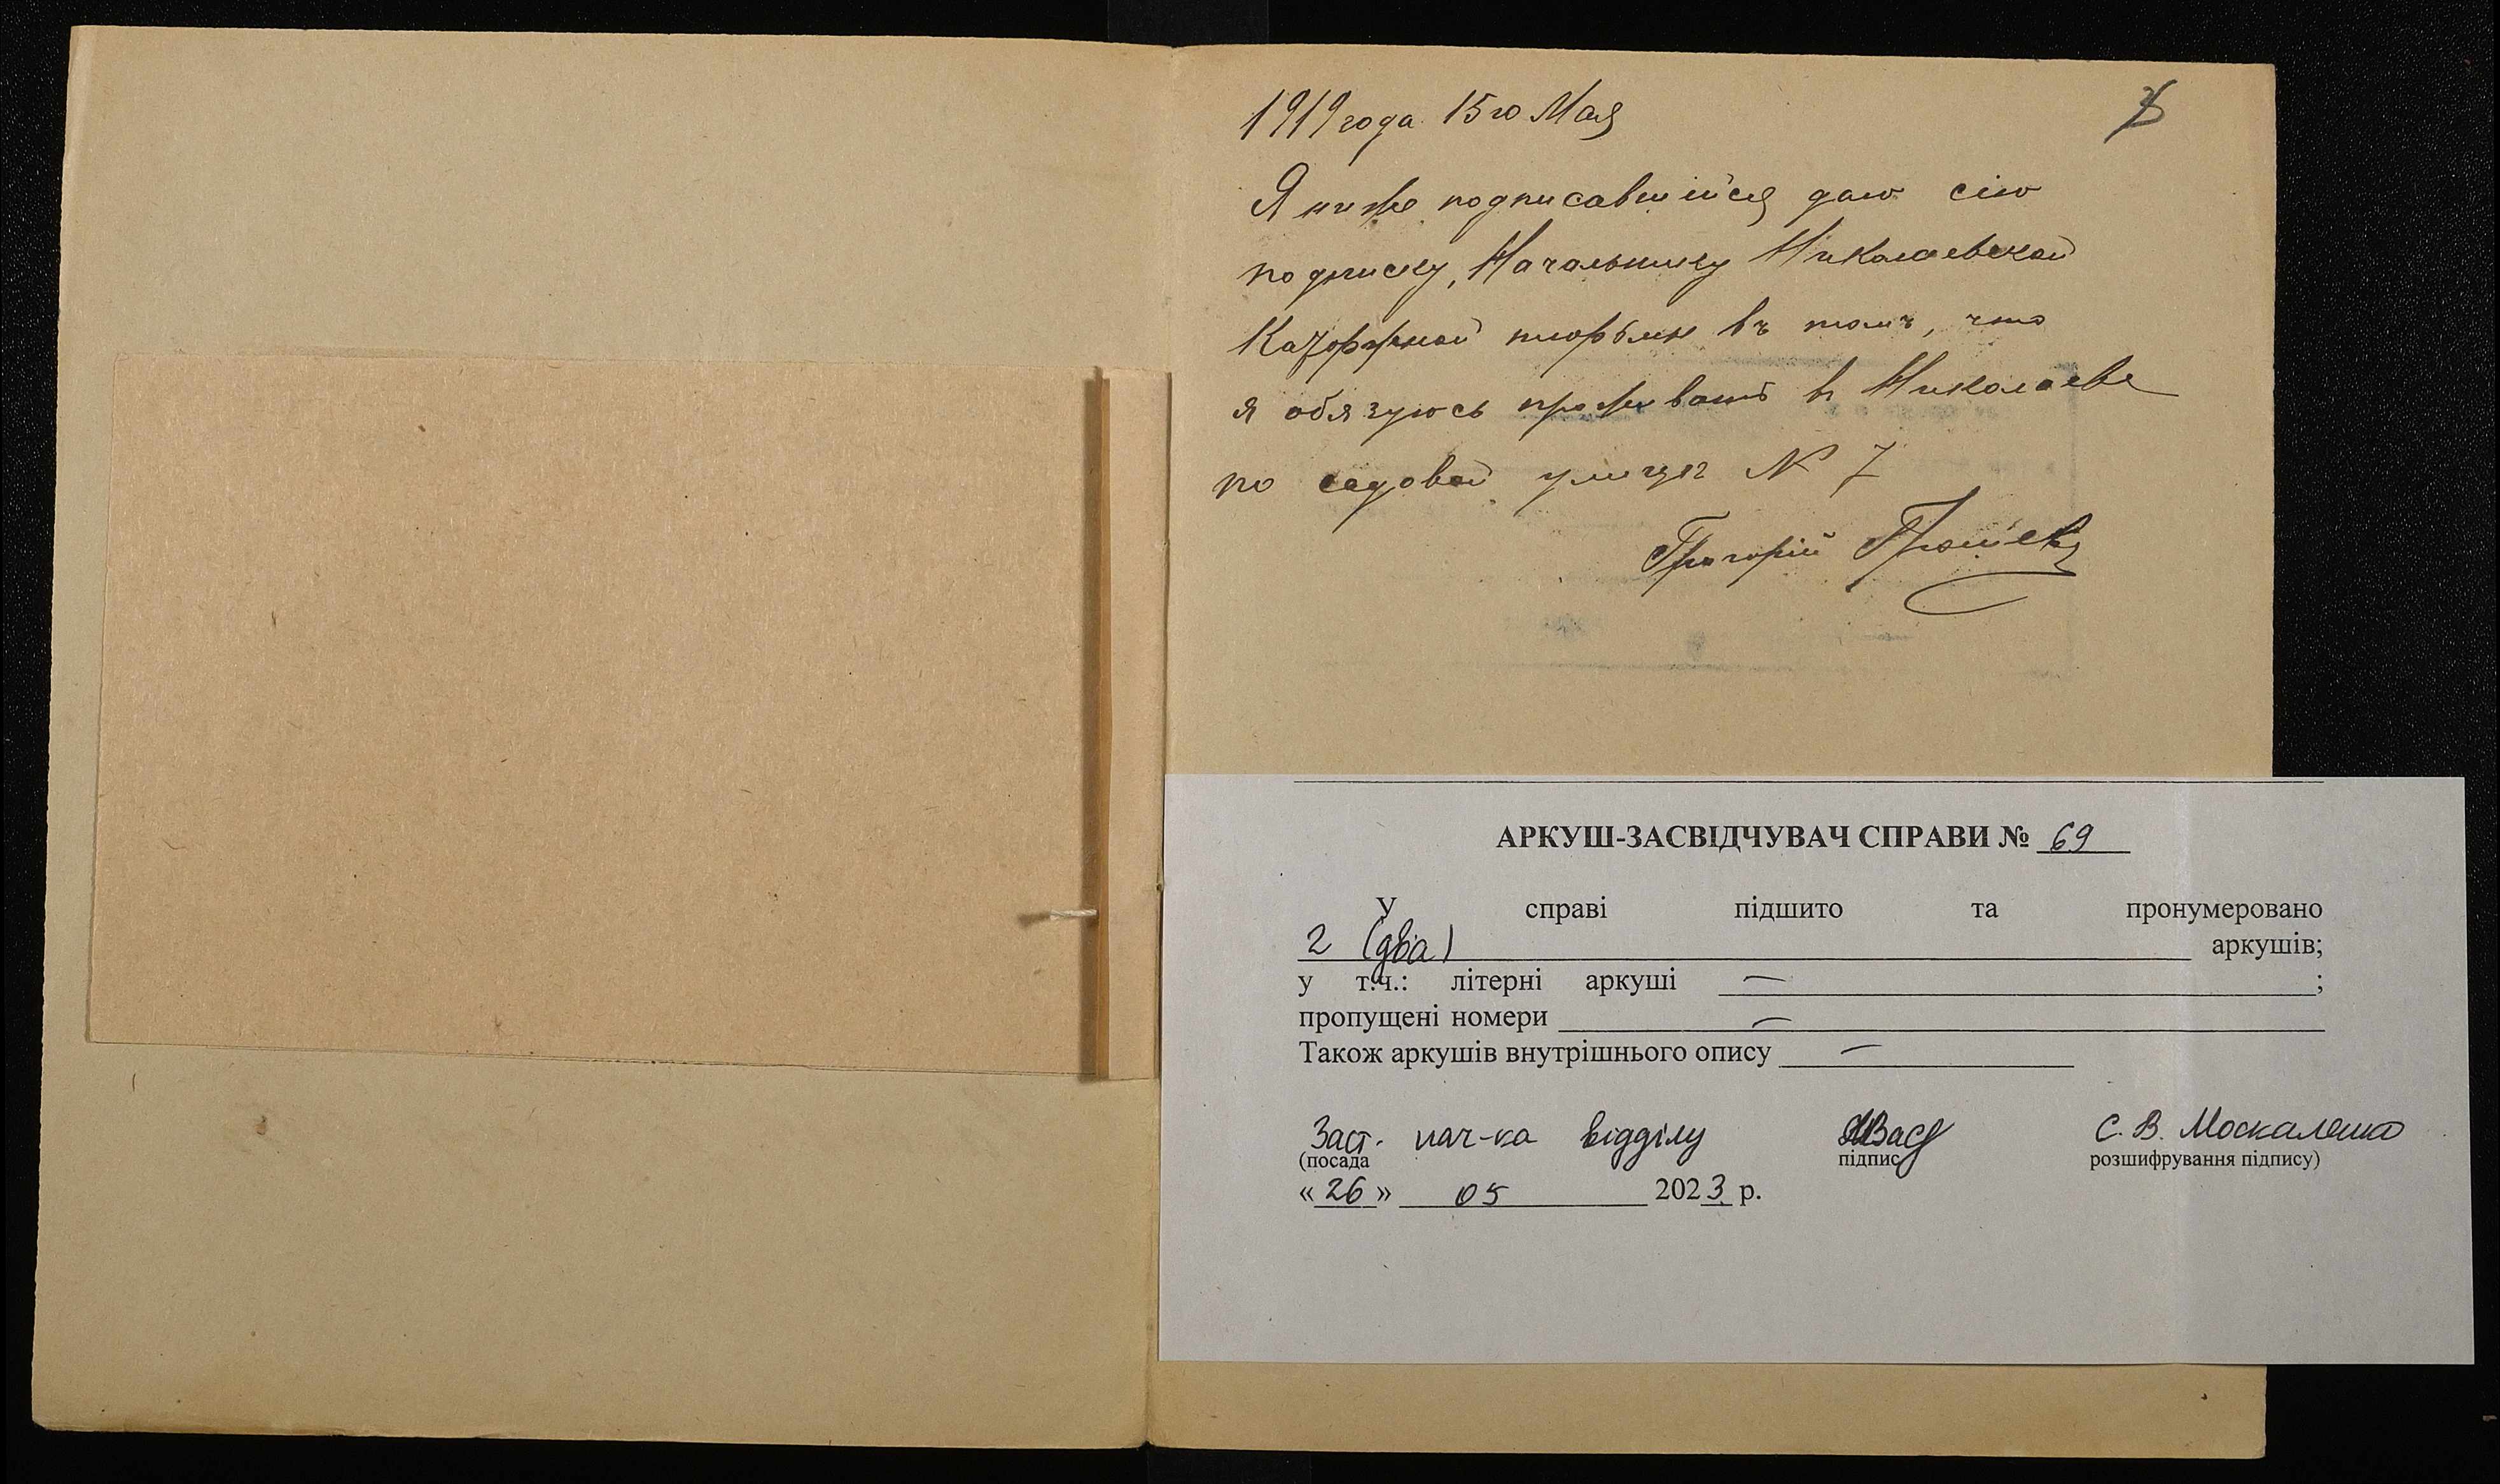 1919 года 15го Мая
Я ниже подписавшийся даю сію
подписку, Начальнику Николаевской
Каторжной тюрьмы въ томъ, что
я обязуюсь проживать в Николаеве
по садовой улицѣ № 7
Григорій
АРКУШ-ЗАСВІДЧУВАЧ СПРАВИ № 69
У справі підшито та пронумеровано
2 (два) аркушів;
у т.ч.: літерні аркуші — ;
пропущені номери —
Також аркушів внутрішнього опису —
Заст. нач-ка відділу С. В. Москаленко
(посада підпис розшифрування підпису)
« 26 » 05 2023 р.